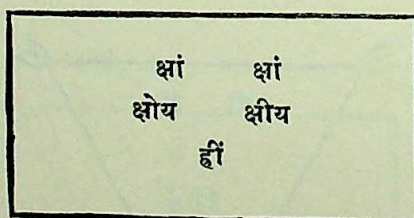 क्षां क्षां
क्षोय क्षीय
ह्रीं